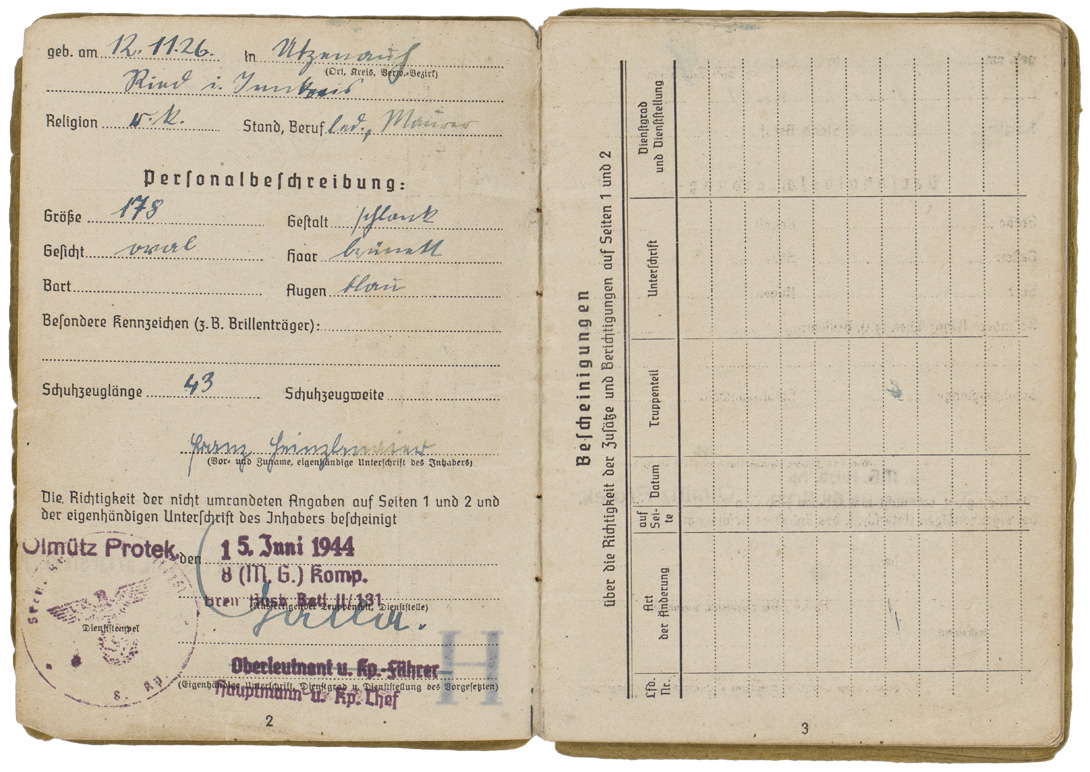 geb. am 12.11.26. in Utzenaich
(Ort, Kreis, Verw.-Bezirk)
Ried i. Innkreis
Religion r. k. Stand, Beruf led., Maurer
Personalbeschreibung:
Größe 178 Gestalt schlank
Gesicht oval Haar brünett
Bart Augen blau
Besondere Kennzeichen (z. B. Brillenträger):
Schuhzeuglänge 43 Schuhzeugweite
Franz Heinzlmaier
(Vor- und Zuname, eigenhändige Unterschrift des Inhabers)
Die Richtigkeit der nicht umrandeten Angaben auf Seiten 1 und 2 und
der eigenhändigen Unterschrift des Inhabers bescheinigt
Olmütz Protek. den 15. Juni 1944
8 (M. G.) Komp.
Gren Ausb Batl II/131
(Ausfertigender Truppenteil, Dienststelle)
Dienststempel
8. Kp
Oberleutnant u. Kp.-Führer
(Eigenhändige Unterschrift, Dienstgrad u. Dienststellung des Vorgesetzten)
Hauptmann u. Kp. Chef
H
2
Bescheinigungen
über die Richtigkeit der Zusätze und Berichtigungen auf Seiten 1 und 2
Lfd. Nr.
Art der Änderung
auf Sei- te
Datum
Truppenteil
Unterschrift
Dienstgrad und Dienststellung
3